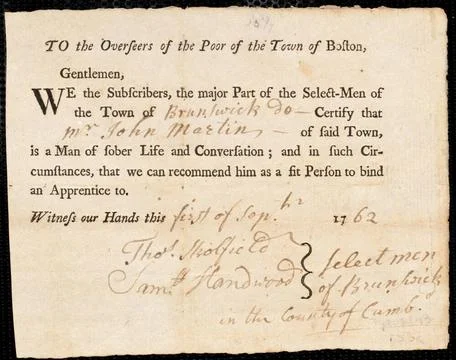 TO the Overseers of the Poor of the Town of Boston,
Gentlemen,
WE the Subscribers, the major Part of the Select-Men of
the Town of Brunswick do — Certify that
mr John Martin — of said Town,
is a Man of sober Life and Conversation ; and in such Cir-
cumstances, that we can recommend him as a fit Person to bind
an Apprentice to.
Witness our Hands this first of Sep.br 1762
Thos. Skolfield
Saml. Standwood
Select men
of Brunswick
in the County of Cumb.